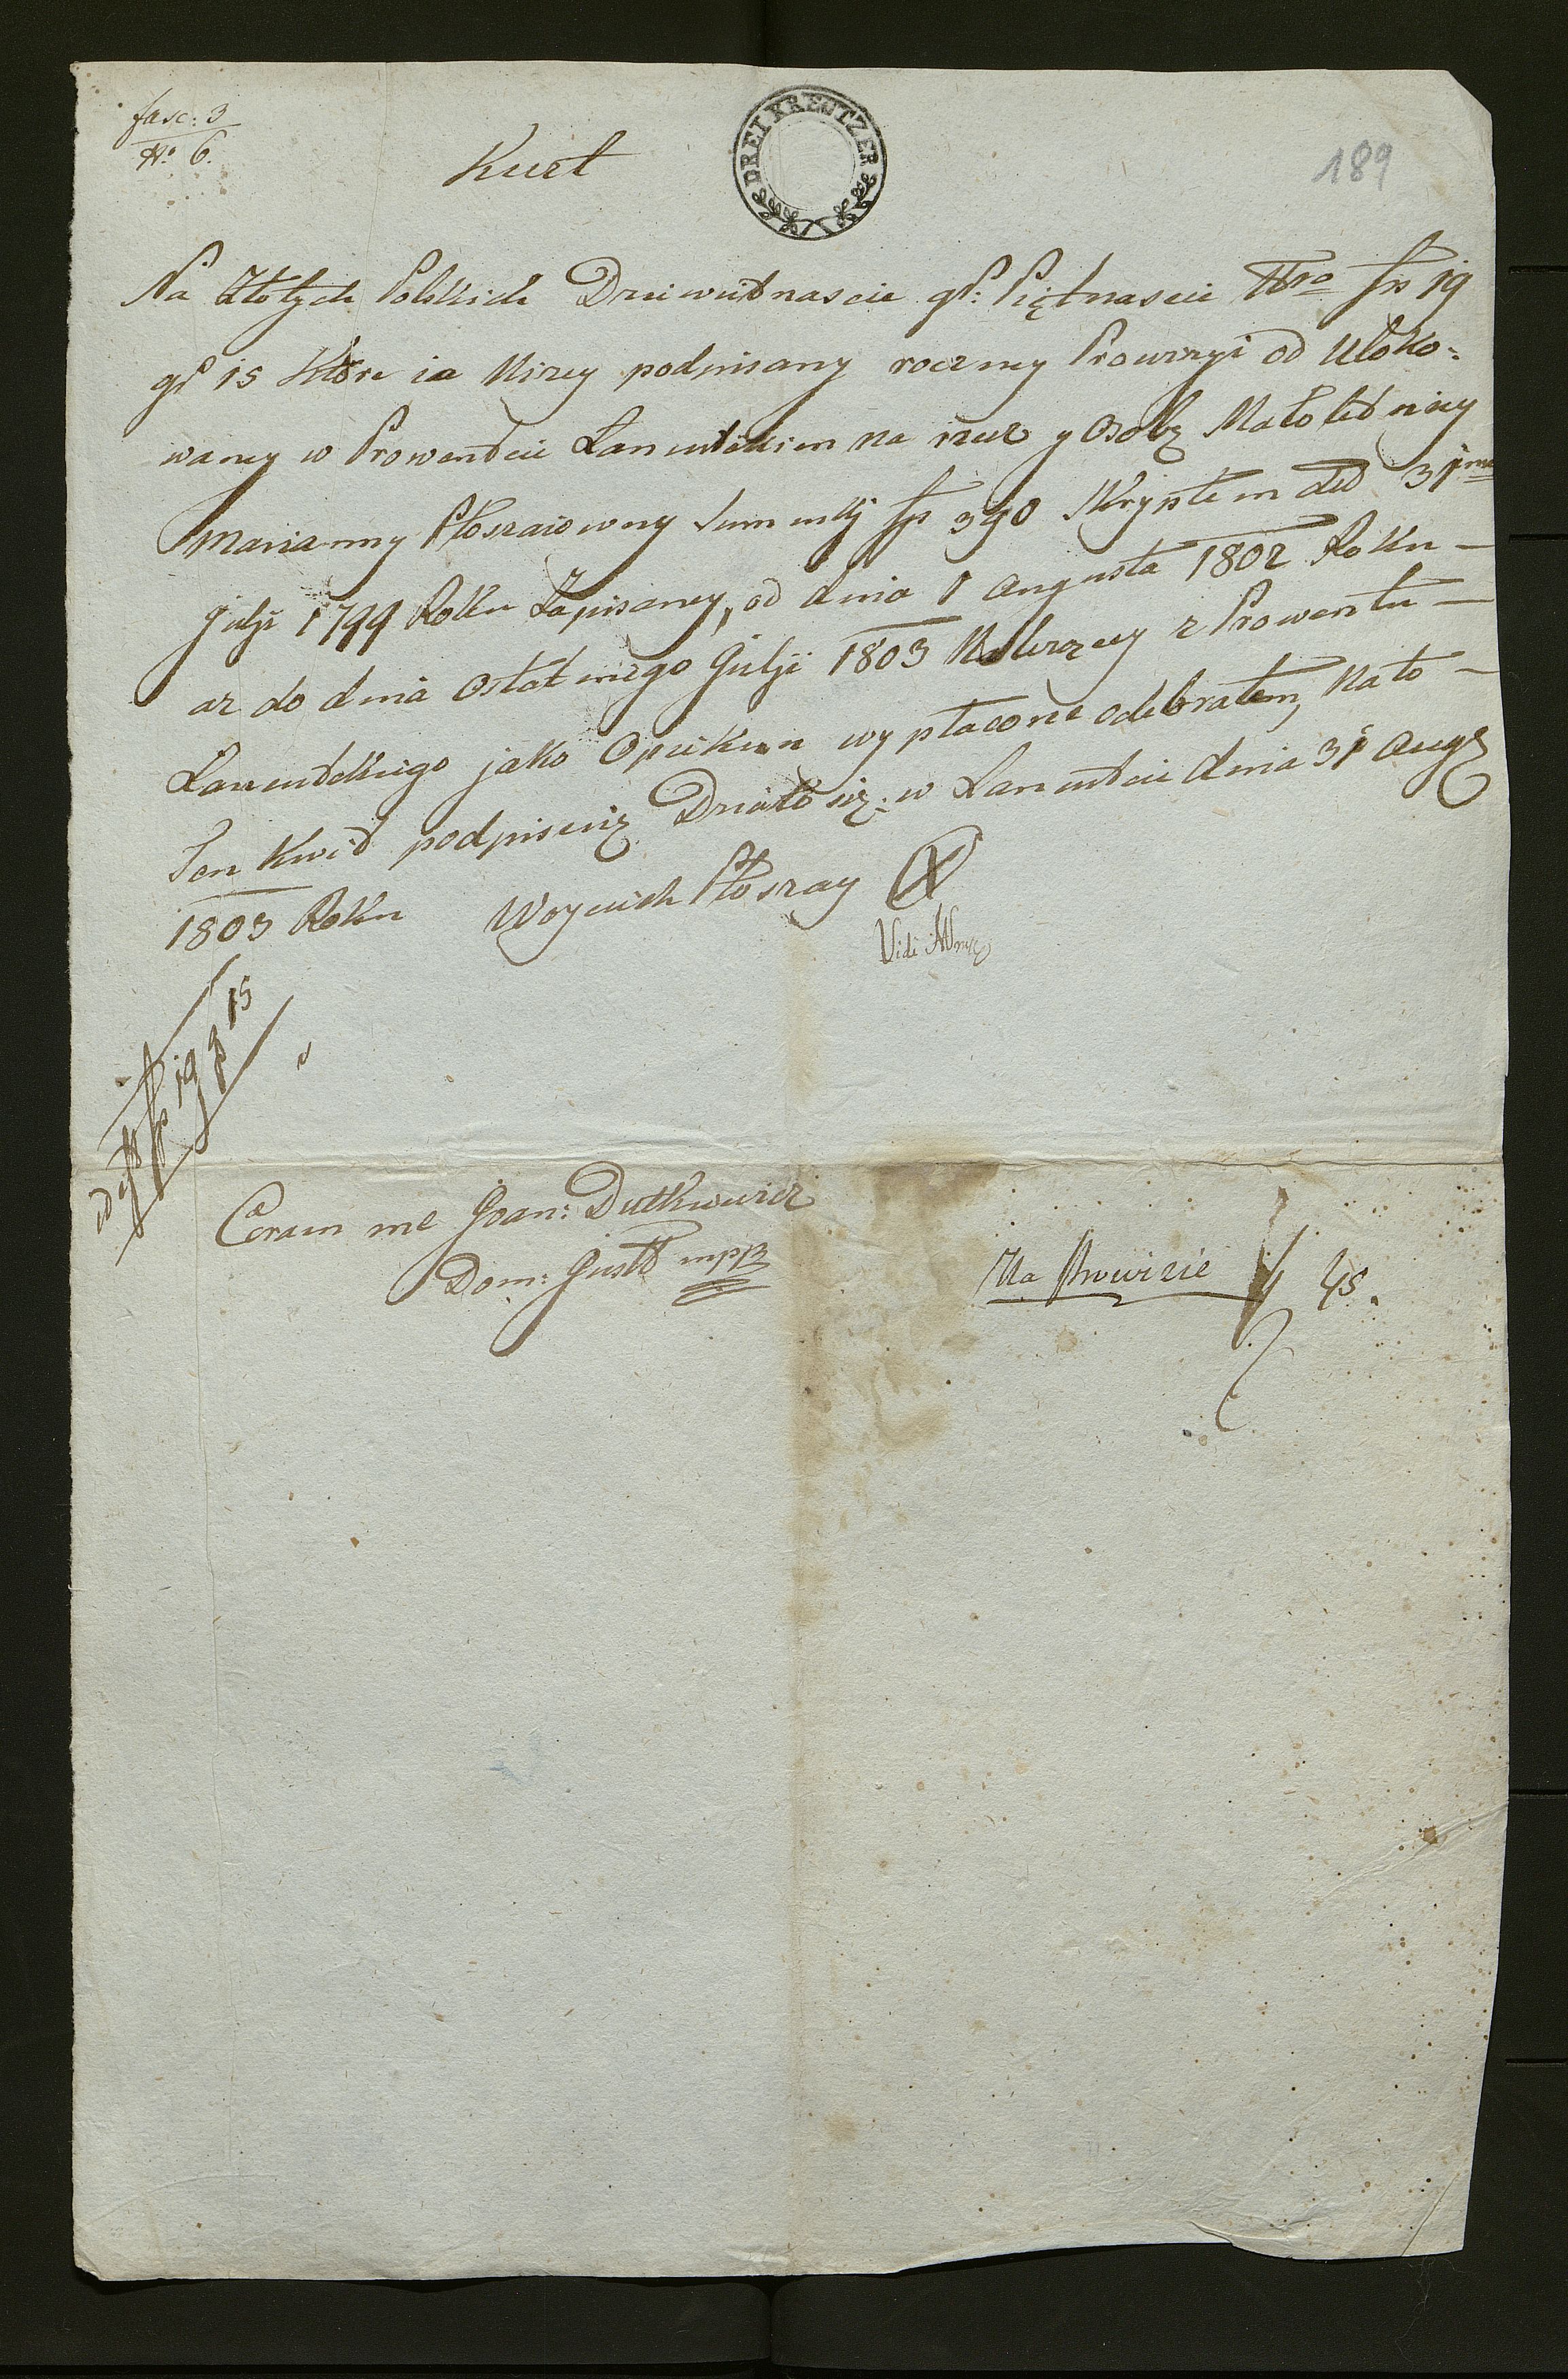 fasc: 3
No 6.
Kwit
DREI KREUTZER
189
Na Złotych Polskich Dziewiętnascie gr: Piętnascie Nro fp 19
gr 15 które ia Niżey podpisany roczney Prowizyi od Uloko-
waney w Prowentcie Lancutskim na rzecz y Osobę Małoletniey
Marianny Płoszaiowny Summy fp 390 Skryptem ded 31ma
Julji 1799 Roku Zapisaney, od dnia 1 Augusta 1802 Roku
az do dnia Ostatniego Julji 1803 Należącey z Prowentu
Lancutskiego jako Opiekun wypłacone odebrałem, Na to
Ten Kwit podpisuię Działo się w Lancutcie dnia 31 Aug
1803 Roku Woyciech Płoszay X
Vidi
fp 19 gr 15
Coram me Joan: Dutkiewicz
Dom: Justb mpp
Na Prowizie 45.